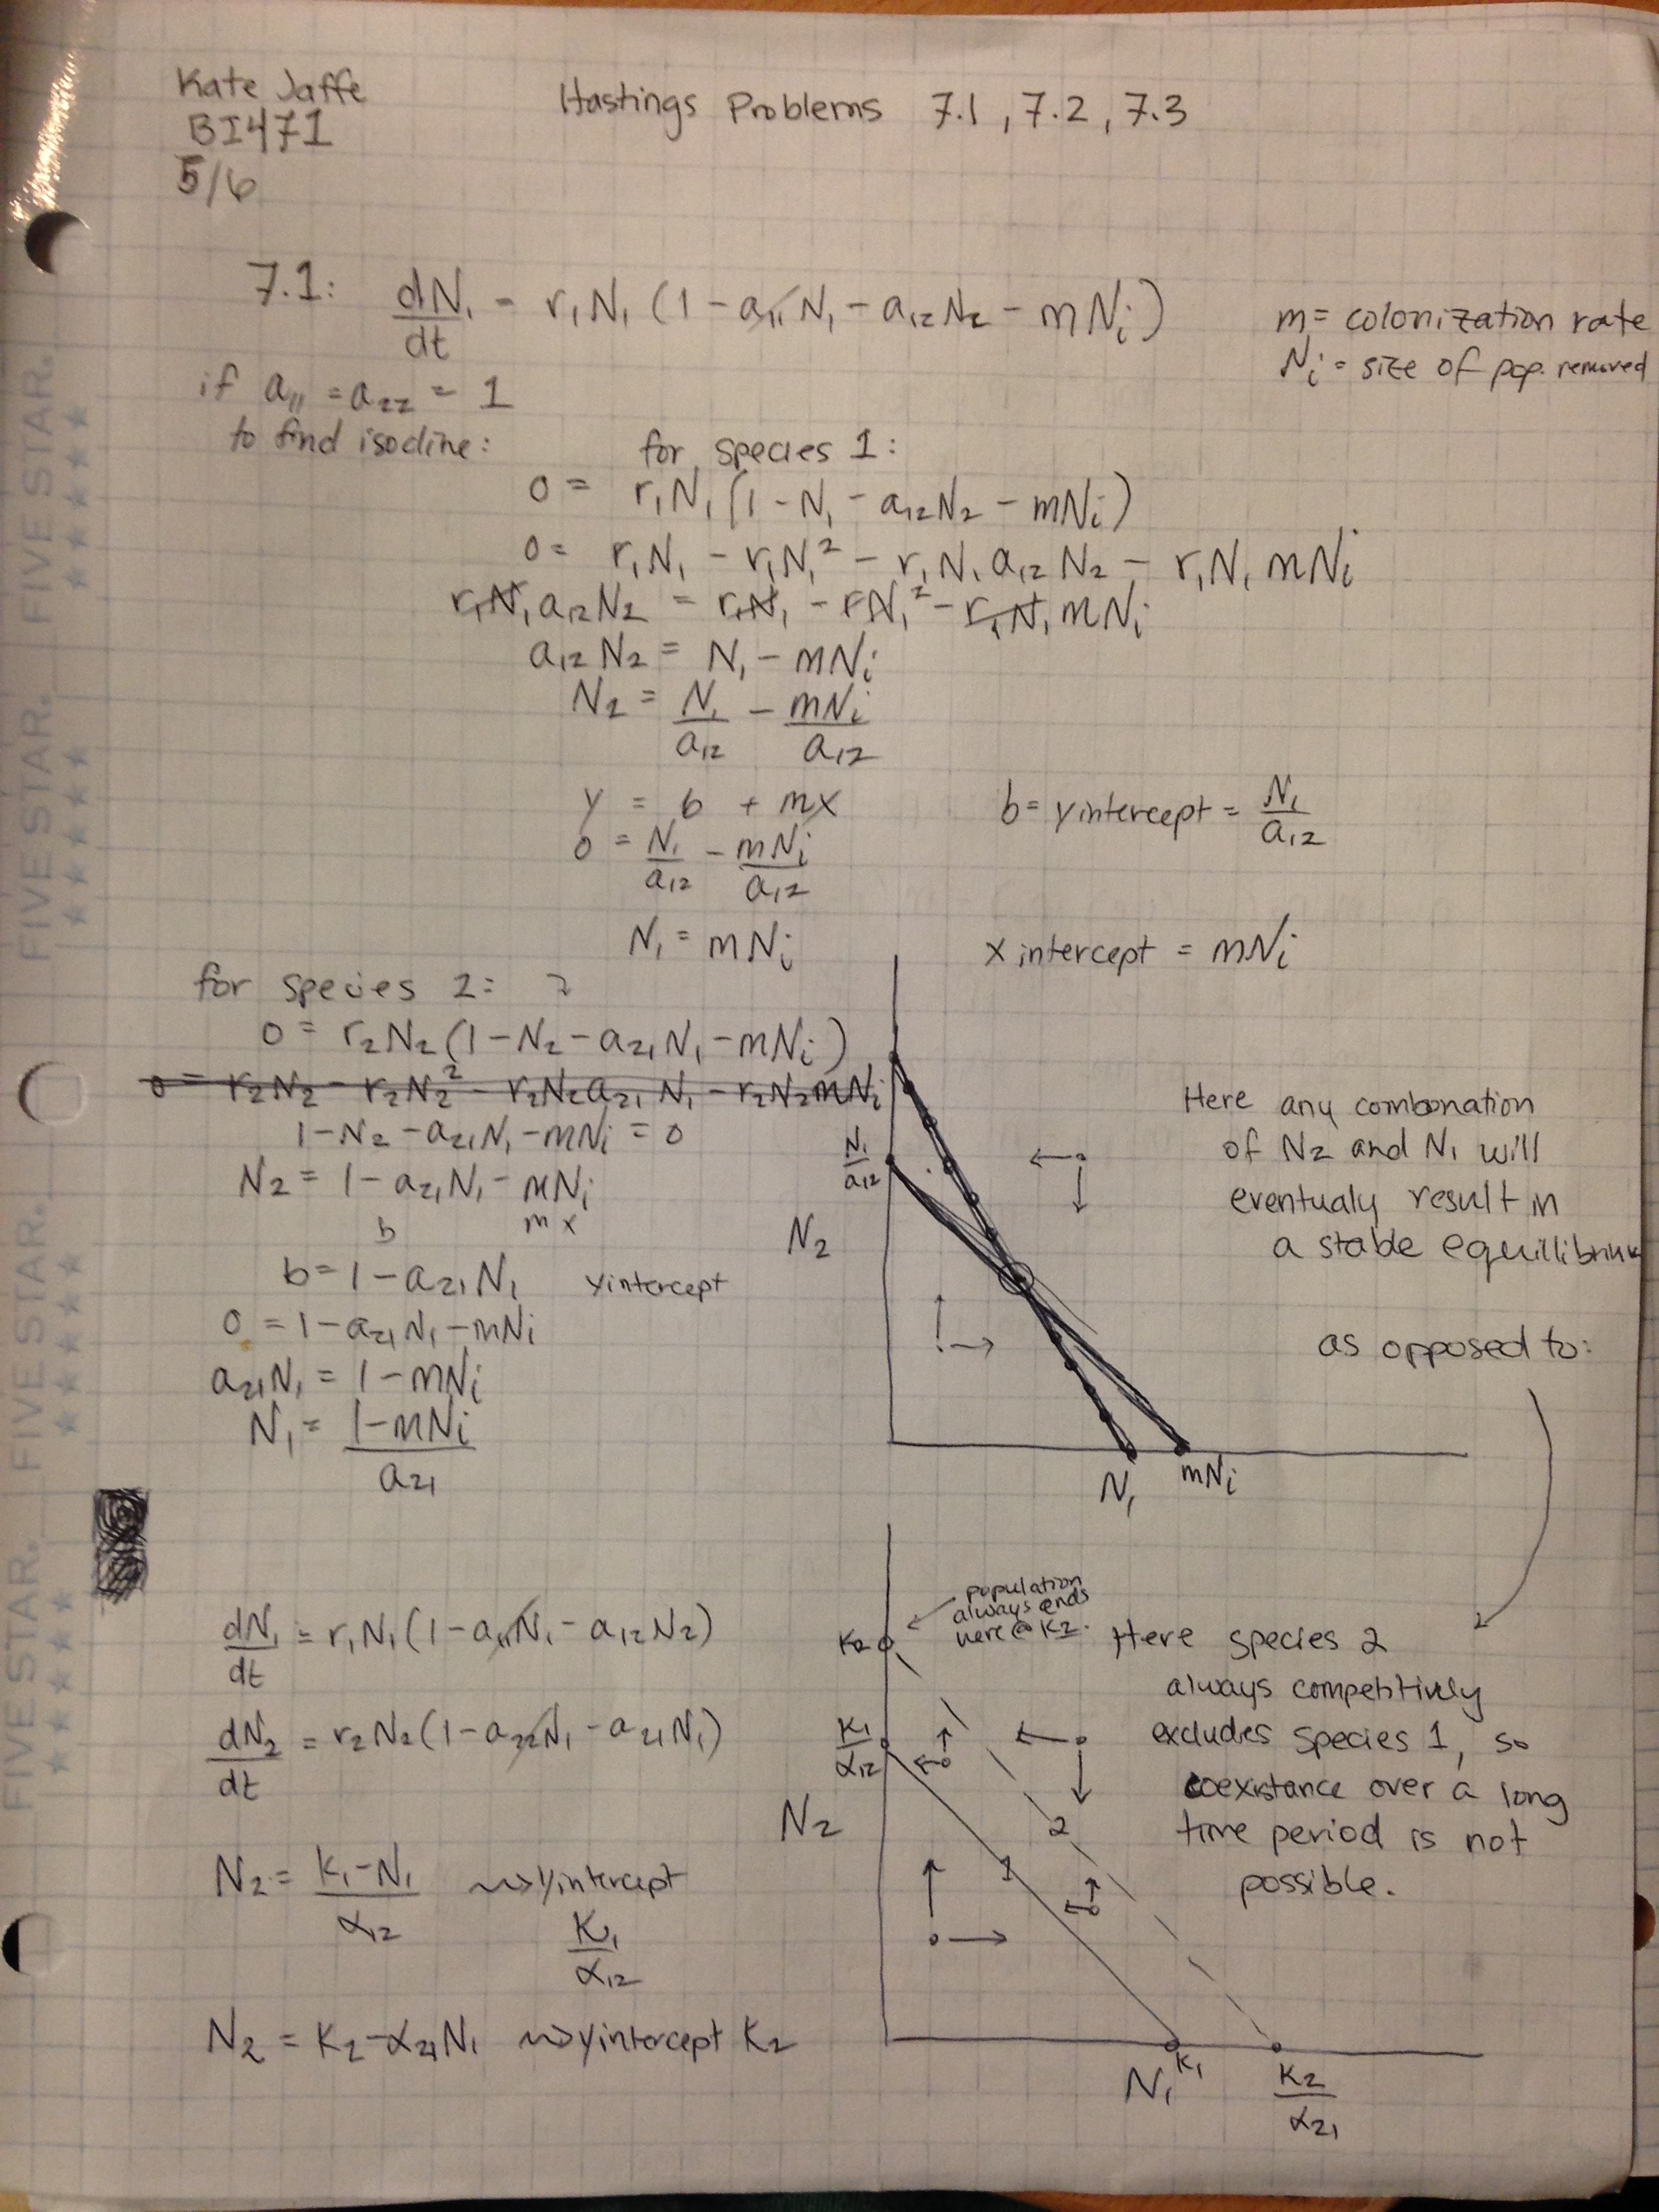 Kate Jaffe
BI471
5/6
Hastings Problems 7.1, 7.2, 7.3
7.1: dN₁/dt = r₁N₁ (1 - a₁₁N₁ - a₁₂N₂ - mNᵢ)
m = colonization rate
Nᵢ = size of pop. removed
if a₁₁ = a₂₂ = 1
to find isocline:
for species 1:
0 = r₁N₁ (1 - N₁ - a₁₂N₂ - mNᵢ)
0 = r₁N₁ - r₁N₁² - r₁N₁ a₁₂ N₂ - r₁N₁ mNᵢ
r₁N₁ a₁₂N₂ = r₁N₁ - rN₁² - r₁N₁ mNᵢ
a₁₂N₂ = N₁ - mNᵢ
N₂ = N₁/a₁₂ - mNᵢ/a₁₂
y = b + mx
b = y intercept = N₁/a₁₂
0 = N₁/a₁₂ - mNᵢ/a₁₂
N₁ = mNᵢ
x intercept = mNᵢ
for species 2: 2
0 = r₂N₂ (1 - N₂ - a₂₁N₁ - mNᵢ)
0 = r₂N₂ - r₂N₂² - r₂N₂a₂₁N₁ - r₂N₂mNᵢ
1 - N₂ - a₂₁N₁ - mNᵢ = 0
N₂ = 1 - a₂₁N₁ - mNᵢ
b m x
b = 1 - a₂₁N₁ y intercept
0 = 1 - a₂₁N₁ - mNᵢ
a₂₁N₁ = 1 - mNᵢ
N₁ = 1-mNᵢ/a₂₁
N₁/a₁₂
N₂
N₁
mNᵢ
Here any combonation
of N₂ and N₁ will
eventualy result in
a stable equillibrium
as opposed to:
dN₁/dt = r₁N₁(1 - a₁₁N₁ - a₁₂N₂)
dN₂/dt = r₂N₂(1 - a₂₂N₁ - a₂₁N₁)
N₂ = K₁-N₁/α₁₂ ⇝ y intercept
K₁/α₁₂
N₂ = K₂ - α₂₁N₁ ⇝ y intercept K₂
population
always ends
here @ K₂.
K₂
K₁/α₁₂
N₂
2
1
N₁
K₁
K₂/α₂₁
Here species 2
always competitively
excludes species 1, so
coexistance over a long
time period is not
possible.
FIVE STAR.
FIVE STAR.
FIVE STAR.
FIVE STAR.
FIVE STAR.